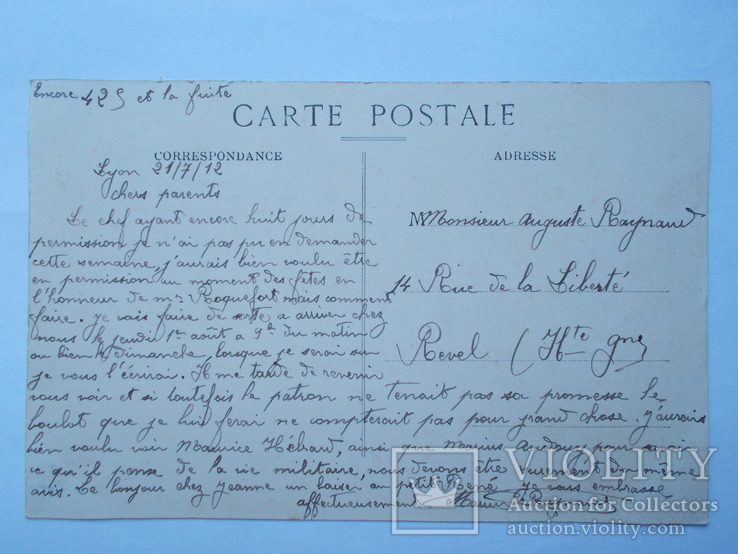 Encore 425 et la fuite
CARTE POSTALE
CORRESPONDANCE
ADRESSE
Lyon 21/7/12
chers parents
Le chef ayant encore huit jours de
permission je n'ai pas pu en demander
cette semaine, j'aurais bien voulu être
en permission au moment des fêtes en
l'honneur de mr Roquefort mais comment
faire. je vais faire de sorte a arriver chez
nous le jeudi 1er août a 9h du matin
ou bien le dimanche, lorsque je serai sur
je vous l'écrirai. Il me tarde de revenir
vous voir et si toutefois le patron ne tenait pas sa promesse le
boulot que je lui ferai ne compterait pas pour grand chose. j'aurais
bien voulu voir Maurice Hébrard, ainsi que Marius pour savoir
ce qu'il pense de la vie militaire, nous devons être surement du même
avis. Le bonjour chez jeanne un baiser au petit René. je vous embrasse
affectueusement
M Monsieur Auguste Raynaud
14 Rue de la Liberté
Revel (Hte Gne)
VIOLITY
Auction for Collectors
auction.violity.com